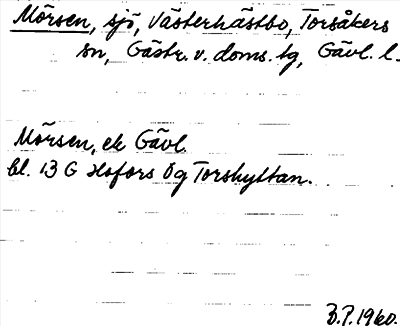 Mörsen, sjö, Västerhästbo, Torsåkers
sn, Gästr. v. doms. tg, Gävl. l.
Mörsen, ek Gävl.
bl. 13 G Hofors Ög Torshyttan.
B.P. 1960.